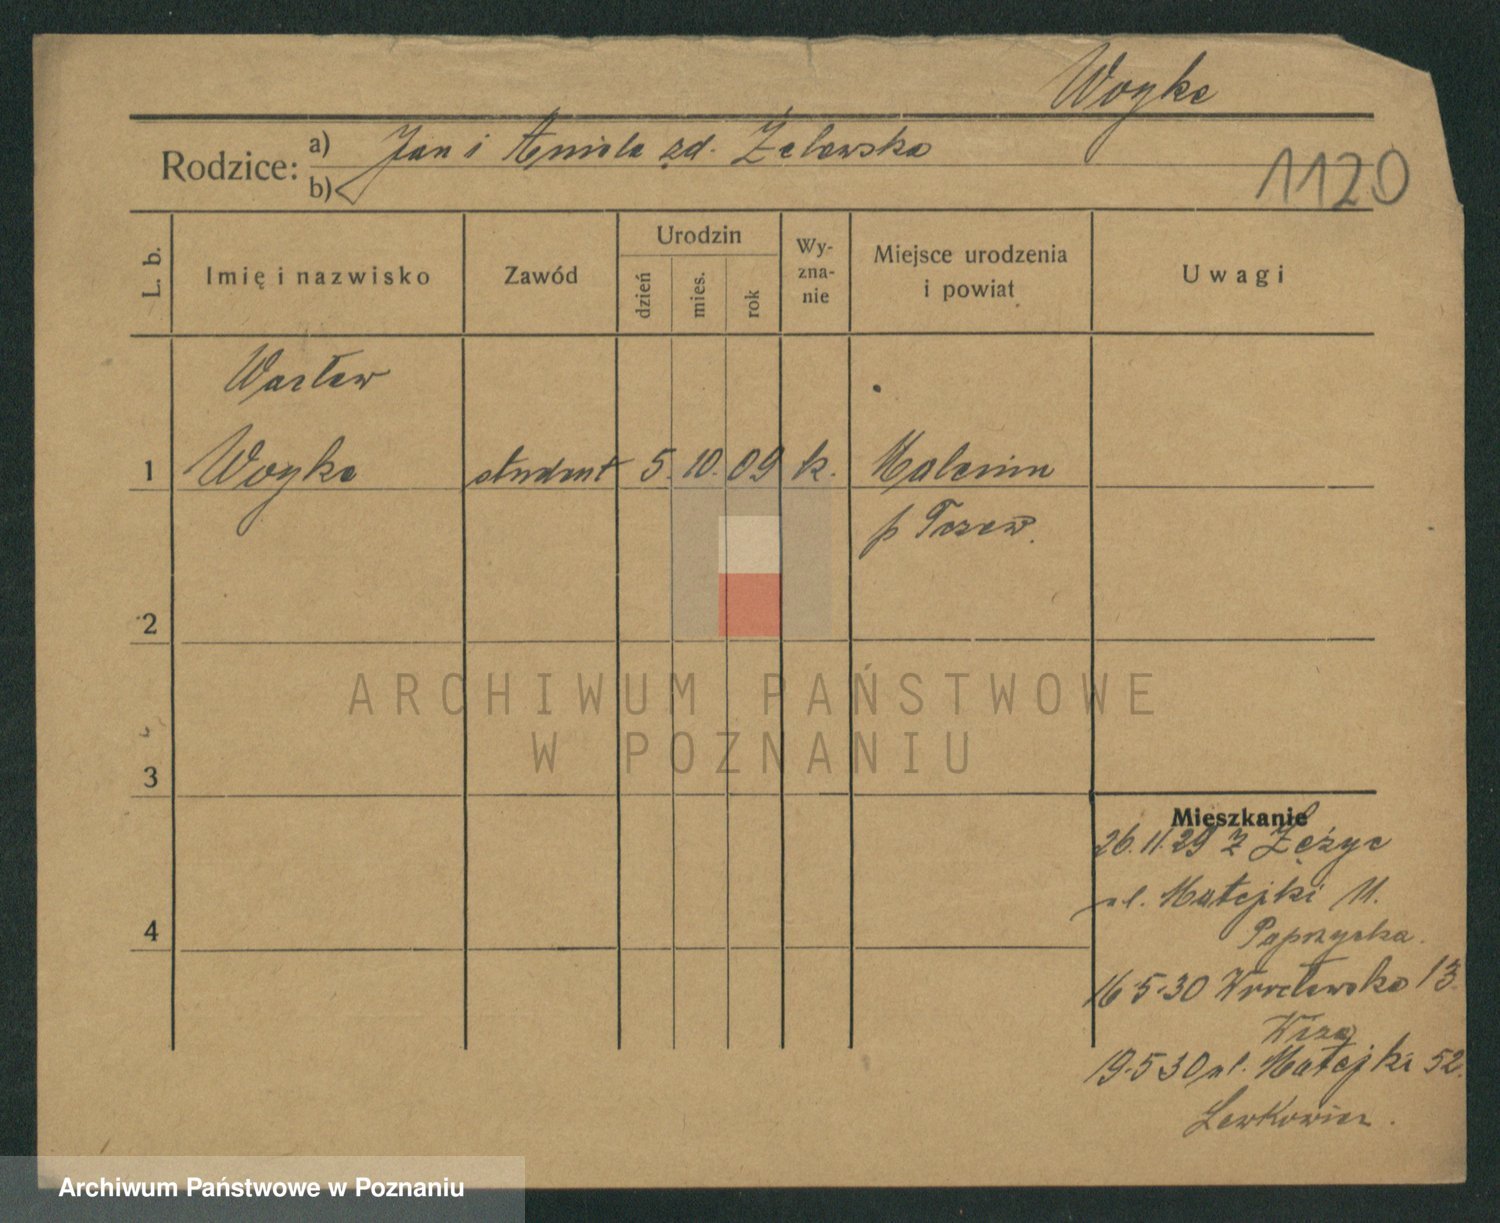 Woyke
Rodzice: a) Jan i Aniela zd. Zelewska
b)
1120
L. b.
Imię i nazwisko
Zawód
Urodzin
dzień
mies.
rok
Wy-
zna-
nie
Miejsce urodzenia
i powiat
Uwagi
Wacław
1 Woyke student 5. 10. 09 k. Malenin
p Tczew.
2
3
4
Mieszkanie
26.11.29 z Zężyc
ul. Matejki 11.
Paprzycka.
16.5.30 Wrocławska 13.
19.5 30 ul. Matejki 52.
Lewkowicz.
ARCHIWUM PAŃSTWOWE
W POZNANIU
Archiwum Państwowe w Poznaniu